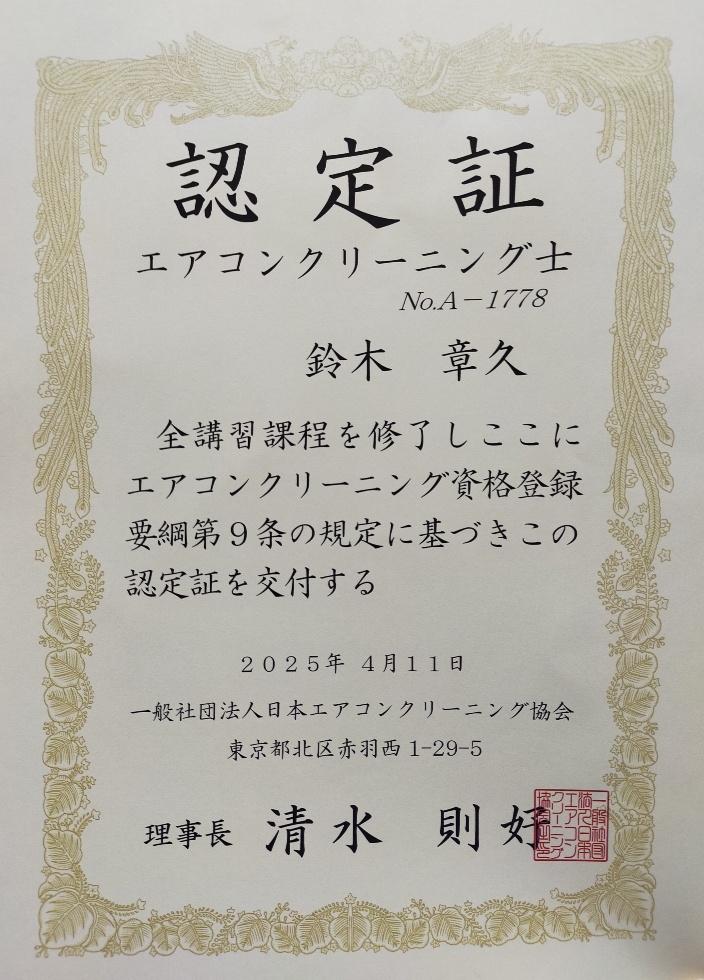 認定証
エアコンクリーニング士
No.A−1778
鈴木　章久
全講習課程を修了しここに
エアコンクリーニング資格登録
要綱第９条の規定に基づきこの
認定証を交付する
２０２５年 ４月１１日
一般社団法人日本エアコンクリーニング協会
東京都北区赤羽西 1-29-5
理事長 清水 則好